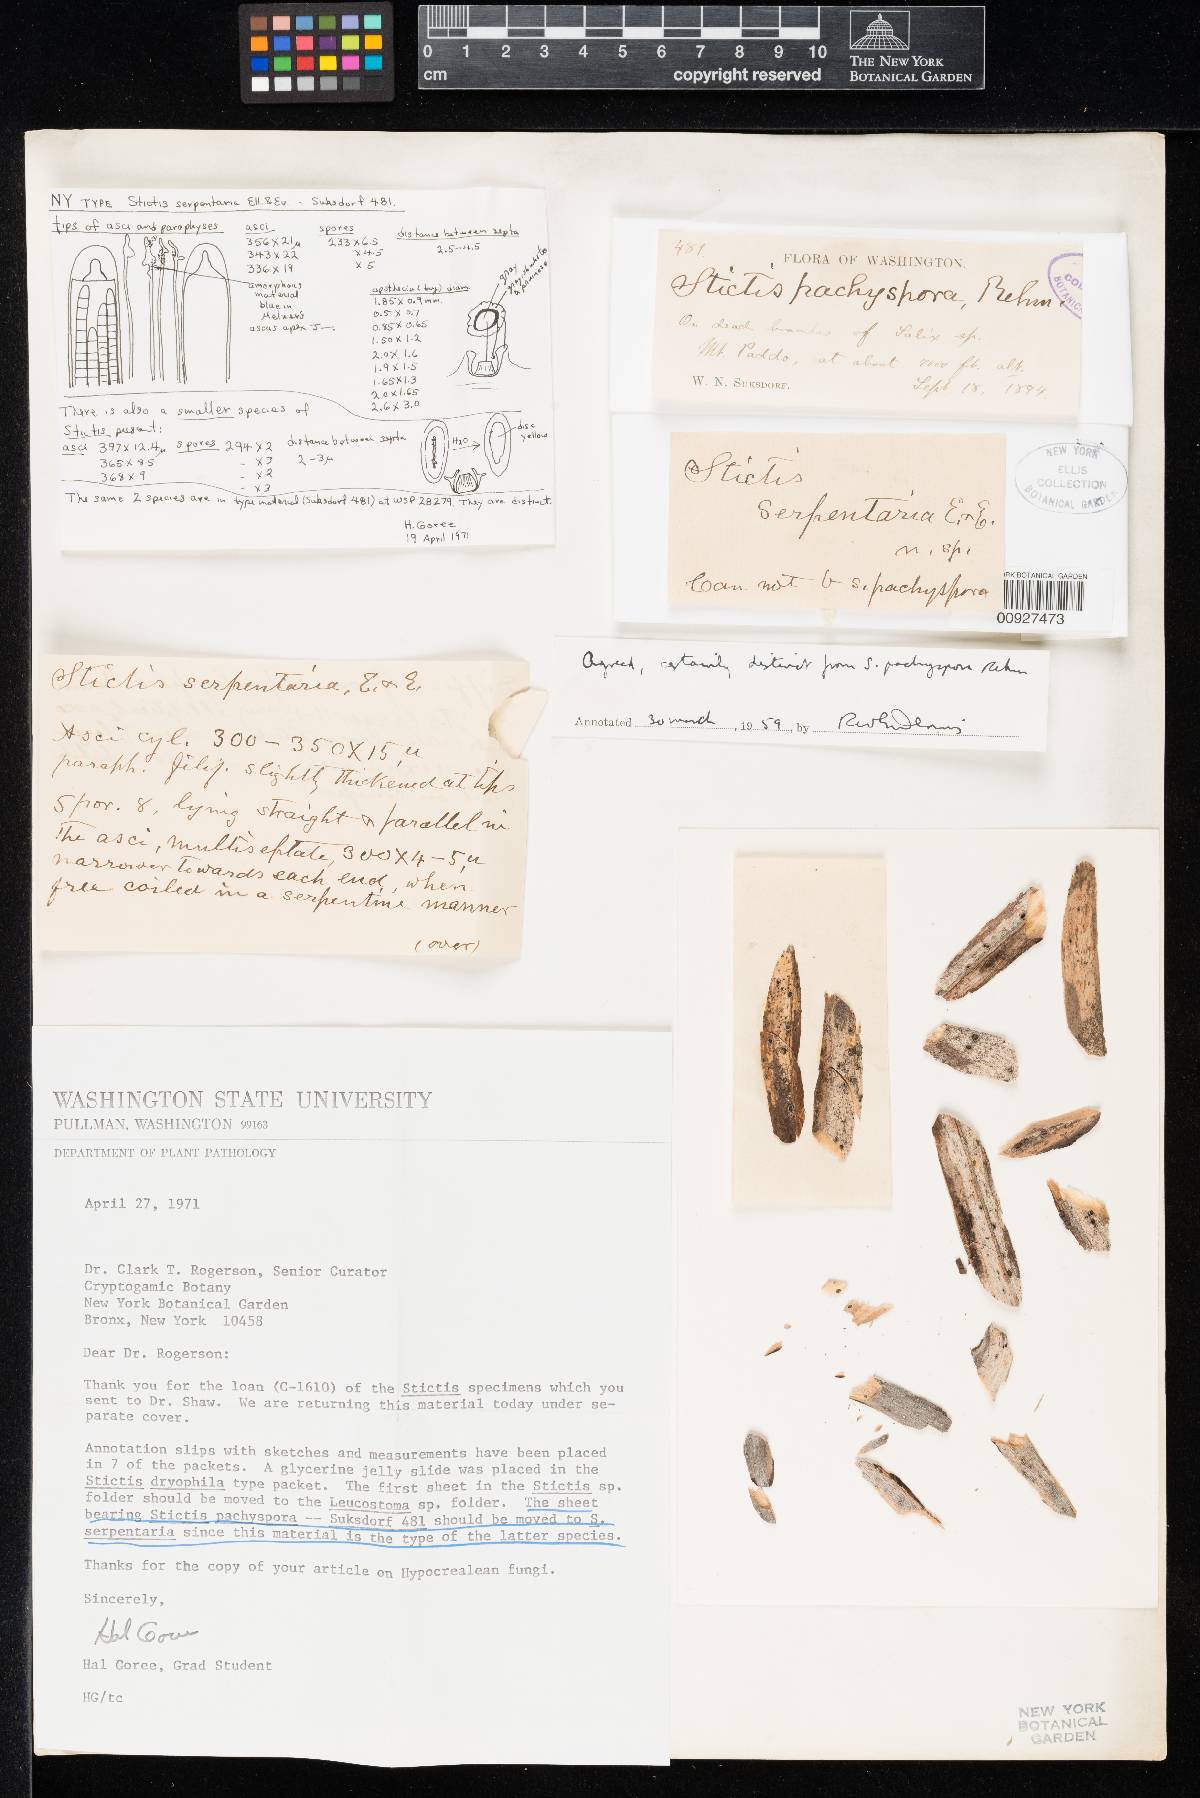 0 1 2 3 4 5 6 7 8 9 10
cm
copyright reserved
THE NEW YORK
BOTANICAL GARDEN
NY TYPE Stictis serpentaria Ell. & Ev. - Suksdorf 481.
tips of asci and paraphyses
asci
356 x 21µ
343 x 22
336 x 19
amorphous
material
blue in
Melzer's
ascus apex J-
spores
233 x 6.5
x 4.5
x 5
distance between septa
2.5-4.5
apothecia (dry) diam.
1.85 x 0.9 mm.
0.5 x 0.7
0.85 x 0.65
1.50 x 1.2
2.0 x 1.6
1.9 x 1.5
1.65 x 1.3
2.0 x 1.65
2.6 x 3.0
gray
There is also a smaller species of
Stictis present:
asci 397 x 12.4µ
365 x 8.5
368 x 9
spores 294 x 2
- x 3
- x 2
- x 3
distance between septa
2-3µ
H2O
disc
yellow
The same 2 species are in type material (Suksdorf 481) at WSP 28279. They are distinct.
H. Goree
19 April 1971
481
FLORA OF WASHINGTON.
Stictis pachyspora, Rehm.
On dead branches of Salix sp.
Mt. Paddo, at about ft. alt.
W. N. SUKSDORF.
Sept 18, 1894.
Stictis
Serpentaria E. & E.
n. sp.
Can not b S. pachyspora
NEW YORK
ELLIS
COLLECTION
BOTANICAL GARDEN
RK BOTANICAL GARDEN
00927473
Agreed, certainly distinct from S. pachyspora Rehm
Annotated 30 march, 1959, by RWG Dennis
Stictis serpentaria, E. & E.
Asci cyl. 300-350 X 15 µ
paraph. filif. slightly thickened at tips
Spor. 8, lying straight & parallel in
the asci, multiseptate, 300 X 4-5 µ
narrower towards each end, when
free coiled in a serpentine manner
(over)
WASHINGTON STATE UNIVERSITY
PULLMAN, WASHINGTON 99163
DEPARTMENT OF PLANT PATHOLOGY
April 27, 1971
Dr. Clark T. Rogerson, Senior Curator
Cryptogamic Botany
New York Botanical Garden
Bronx, New York 10458
Dear Dr. Rogerson:
Thank you for the loan (C-1610) of the Stictis specimens which you
sent to Dr. Shaw. We are returning this material today under se-
parate cover.
Annotation slips with sketches and measurements have been placed
in 7 of the packets. A glycerine jelly slide was placed in the
Stictis dryophila type packet. The first sheet in the Stictis sp.
folder should be moved to the Leucostoma sp. folder. The sheet
bearing Stictis pachyspora -- Suksdorf 481 should be moved to S.
serpentaria since this material is the type of the latter species.
Thanks for the copy of your article on Hypocrealean fungi.
Sincerely,
Hal Goree
Hal Goree, Grad Student
HG/tc
NEW YORK
BOTANICAL
GARDEN